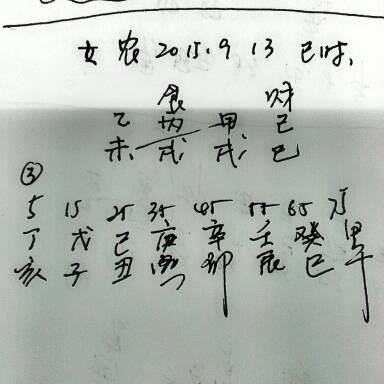 女 农 2015.9 13 巳时.
食 财
乙 丙 甲 己
未 戌 戌 巳
③
5 15 25 35 45 55 65 75
丁 戊 己 庚 辛 壬 癸 甲
亥 子 丑 寅 卯 辰 巳 午